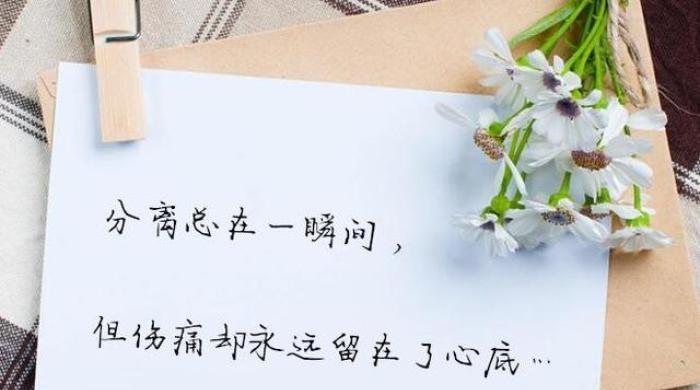 分离总在一瞬间，
但伤痛却永远留在了心底…